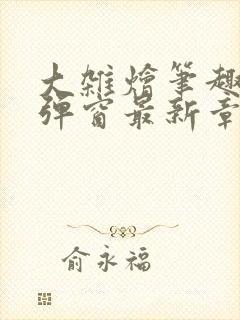 大雑燴筆趣
弹窗最新章
俞永福